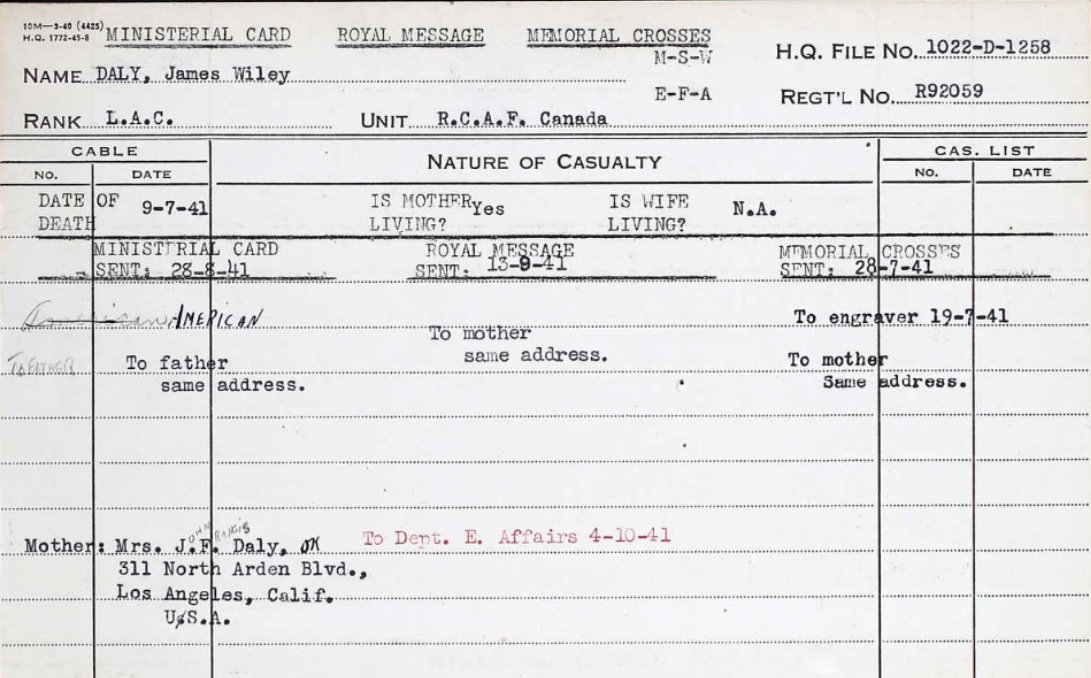 10M—3-40 (4425)
H.Q. 1772-45-8
MINISTERIAL CARD ROYAL MESSAGE MEMORIAL CROSSES
M-S-W
H.Q. FILE No. 1022-D-1258
NAME DALY, James Wiley
E-F-A
REGT'L No. R92059
RANK L.A.C. UNIT R.C.A.F. Canada
CABLE NATURE OF CASUALTY CAS. LIST
NO. DATE NO. DATE
DATE OF 9-7-41 IS MOTHER Yes IS WIFE N.A.
DEATH LIVING? LIVING?
MINISTERIAL CARD ROYAL MESSAGE MEMORIAL CROSSES
SENT: 28-8-41 SENT: 13-9-41 SENT: 28-7-41
American AMERICAN To engraver 19-7-41
To mother
same address.
TO FATHER To father To mother
same address. Same address.
OHN RANCIS
Mother: Mrs. J.F. Daly, OK To Dept. E. Affairs 4-10-41
311 North Arden Blvd.,
Los Angeles, Calif.
U.S.A.